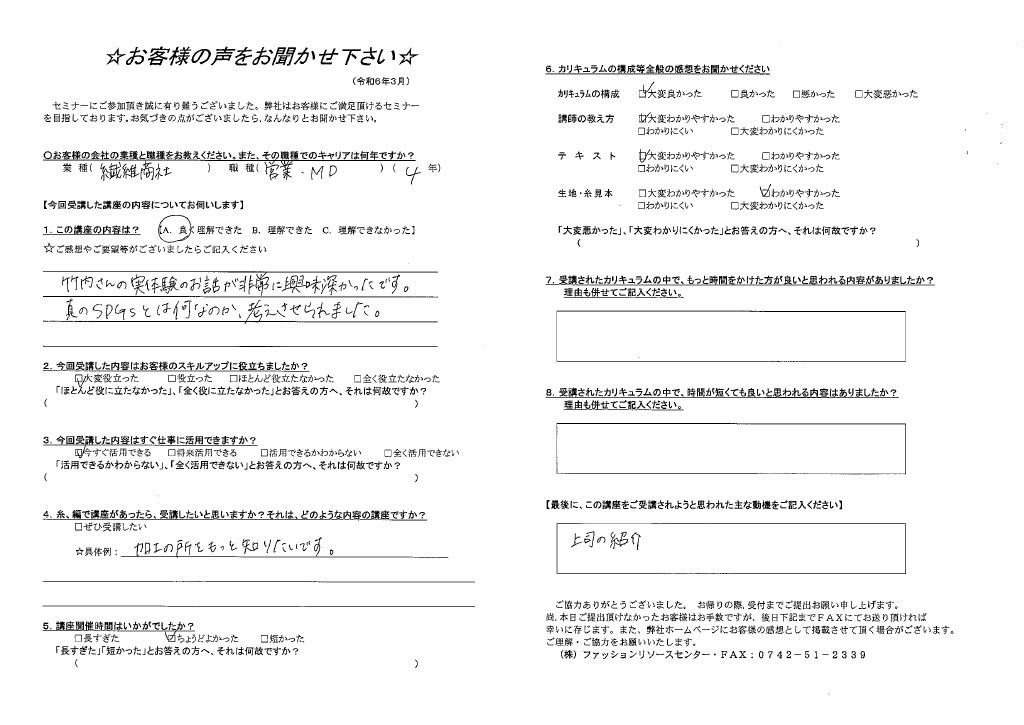 ☆お客様の声をお聞かせ下さい☆
（令和6年3月）
セミナーにご参加頂き誠に有り難うございました。弊社はお客様にご満足頂けるセミナー
を目指しております。お気づきの点がございましたら、なんなりとお聞かせ下さい。
〇お客様の会社の業種と職種をお教えください。また、その職種でのキャリアは何年ですか？
業 種( 繊維商社 ) 職 種( 営業・MD ) ( 4 年)
【今回受講した講座の内容についてお伺いします】
1. この講座の内容は？ 【A. 良く理解できた B. 理解できた C. 理解できなかった】
☆ご感想やご要望等がございましたらご記入ください
竹内さんの実体験のお話が非常に興味深かったです。
真のSDGsとは何なのか、考えさせられました。
2. 今回受講した内容はお客様のスキルアップに役立ちましたか？
☑大変役立った □役立った □ほとんど役立たなかった □全く役立たなかった
「ほとんど役に立たなかった」、「全く役に立たなかった」とお答えの方へ、それは何故ですか？
( )
3. 今回受講した内容はすぐ仕事に活用できますか？
☑今すぐ活用できる □将来活用できる □活用できるかわからない □全く活用できない
「活用できるかわからない」、「全く活用できない」とお答えの方へ、それは何故ですか？
( )
4. 糸、編で講座があったら、受講したいと思いますか？それは、どのような内容の講座ですか？
□ぜひ受講したい
☆具体例： 加工の所をもっと知りたいです。
5. 講座開催時間はいかがでしたか？
□長すぎた ☑ちょうどよかった □短かった
「長すぎた」「短かった」とお答えの方へ、それは何故ですか？
( )
6. カリキュラムの構成等全般の感想をお聞かせください
カリキュラムの構成 ☑大変良かった □良かった □悪かった □大変悪かった
講師の教え方 ☑大変わかりやすかった □わかりやすかった
□わかりにくい □大変わかりにくかった
テ キ ス ト ☑大変わかりやすかった □わかりやすかった
□わかりにくい □大変わかりにくかった
生地・糸見本 □大変わかりやすかった ☑わかりやすかった
□わかりにくい □大変わかりにくかった
「大変悪かった」、「大変わかりにくかった」とお答えの方へ、それは何故ですか？
( )
7. 受講されたカリキュラムの中で、もっと時間をかけた方が良いと思われる内容がありましたか？
理由も併せてご記入ください。
8. 受講されたカリキュラムの中で、時間が短くても良いと思われる内容はありましたか？
理由も併せてご記入ください。
【最後に、この講座をご受講されようと思われた主な動機をご記入ください】
上司の紹介
ご協力ありがとうございました。 お帰りの際、受付までご提出お願い申し上げます。
尚、本日ご提出頂けなかったお客様はお手数ですが、後日下記までFAXにてお送り頂ければ
幸いに存じます。また、弊社ホームページにお客様の感想として掲載させて頂く場合がございます。
ご理解・ご協力をお願いいたします。
（株）ファッションリソースセンター・FAX：0742-51-2339